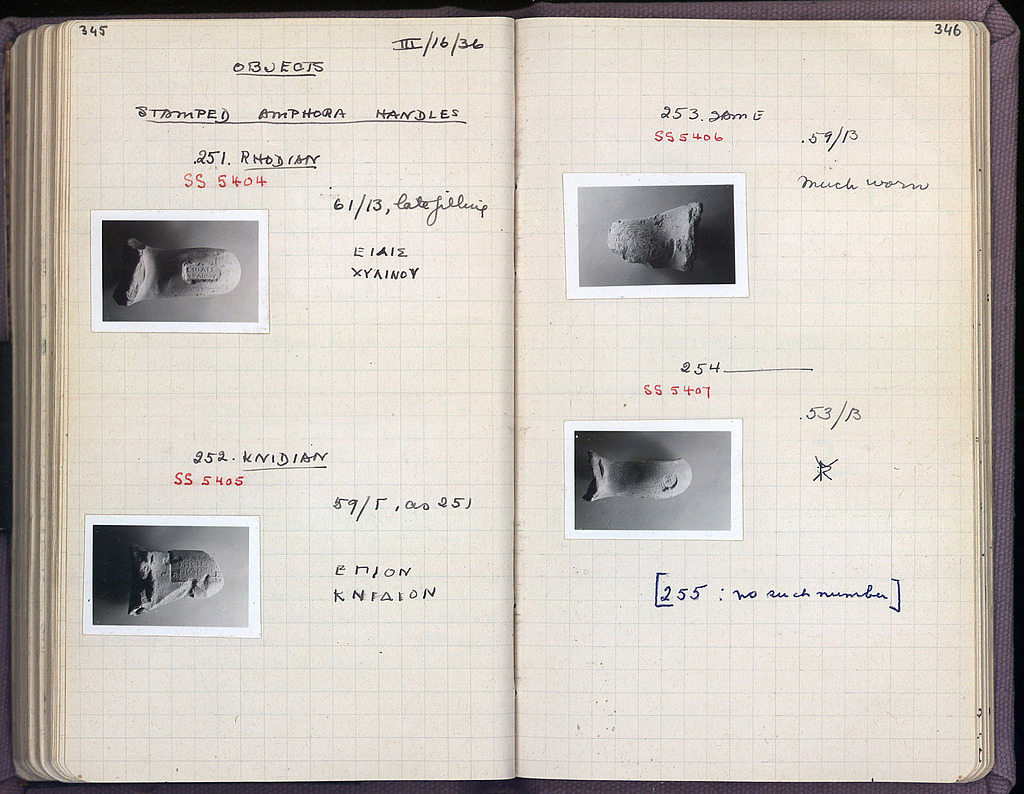 345
III/16/36
OBJECTS
STAMPED AMPHORA HANDLES
251. RHODIAN
SS 5404
61/13, late filling
ΕΙΛΙΣ
ΧΥΛΙΝΟΥ
252. KNIDIAN
SS 5405
59/Γ, as 251
ΕΠΙΟΝ
ΚΝΙΔΙΟΝ
346
253. SAME
SS 5406
.59/B
much worn
254
SS 5407
.53/B
[255 : no such number]